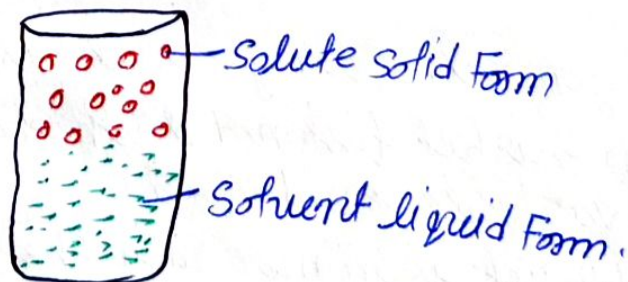 Solute solid Form
Solvent liquid Form.